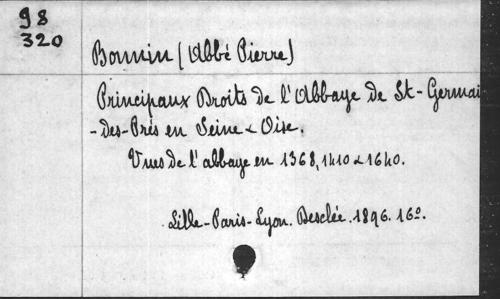 98
320
Bonnin (Abbé Pierre)
Principaux Droits de l'Abbaye de St-Germai
-des-Prés en Seine & Oise.
Vues de l'abbaye en 1368, 1410 & 1640.
Lille-Paris-Lyon. Desclée. 1896. 16º.